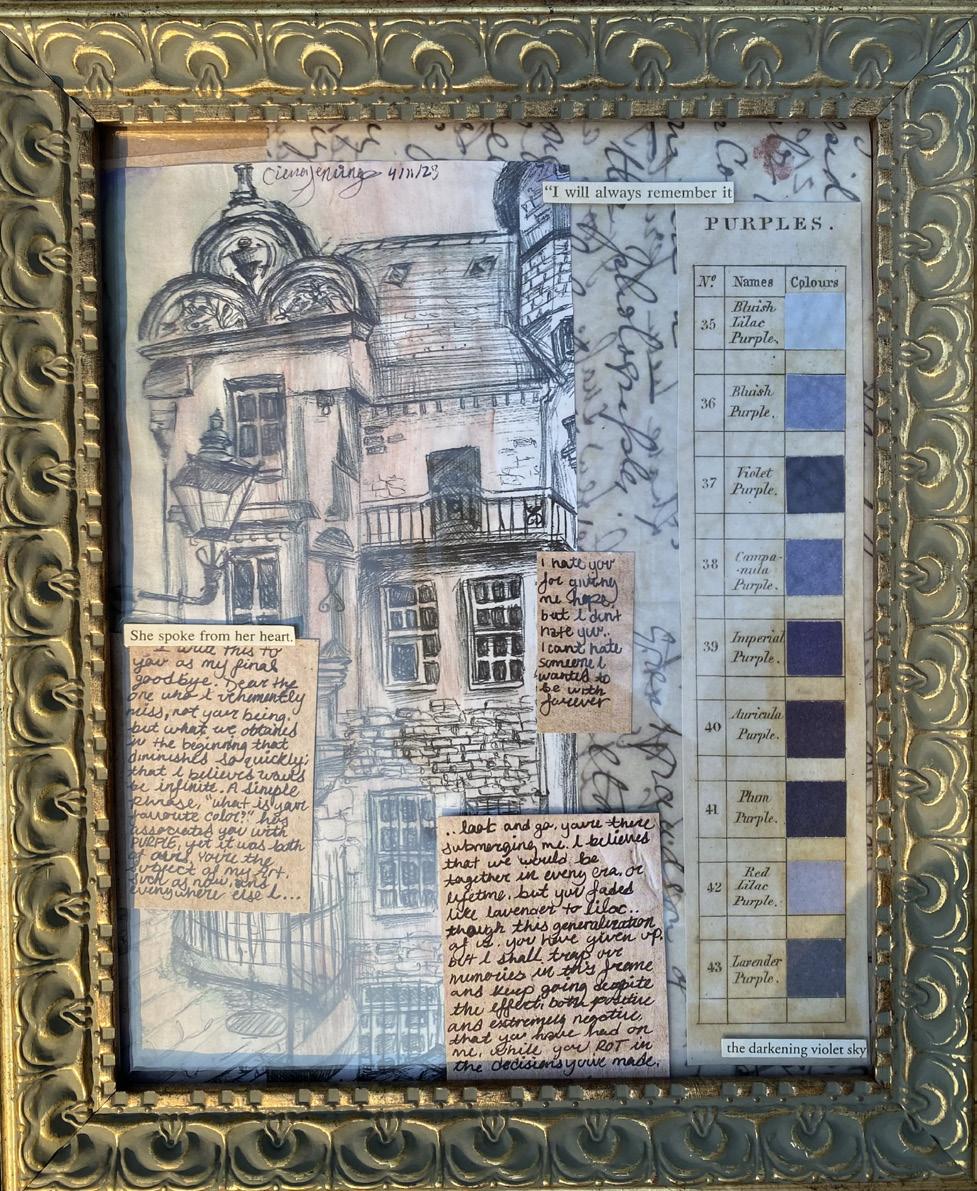 Cierra Jenning 4/11/23
"I will always remember it
PURPLES.
Nº. Names Colours
35 Bluish Lilac Purple.
36 Bluish Purple.
37 Violet Purple.
38 Campa-nula Purple.
39 Imperial Purple.
40 Auricula Purple.
41 Plum Purple.
42 Red Lilac Purple.
43 Lavender Purple.
the darkening violet sky
I hate you
for giving
me hope,
but I dont
hate you..
I cant hate
someone I
wanted to
be with
forever
She spoke from her heart.
I write this to
you as my final
goodbye. Dear the
one who I vehemently
miss, not your being,
but what we obtained
in the beginning that
diminished so quickly;
that I believed would
be infinite. A simple
phrase, "what is your
favourite color?" has
associated you with
PURPLE, yet it was both
of ours. You're the
subject of my art,
such as now, and
everywhere else I...
..look and go, you're there
submerging me. I believed
that we would be
together in every era, or
lifetime, but you faded
like lavender to lilac..
though this generalization
of us. you have given up,
but I shall trap our
memories in this frame
and keep going despite
the effect, both positive
and extremely negative,
that you have had on
me, while you ROT in
the decisions you've made.